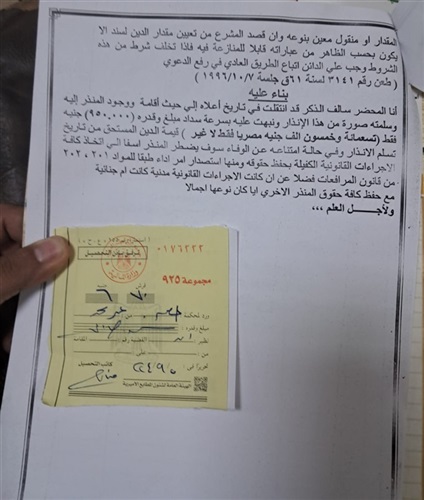 المقدار او منقول معين بنوعه وان قصد المشرع من تعيين مقدار الدين لسند الا
يكون بحسب الظاهر من عباراته قابلا للمنازعة فيه فاذا تخلف شرط من هذه
الشروط وجب علي الدائن اتباع الطريق العادي في رفع الدعوي
( طعن رقم ٣١٤١ لسنة ٦١ق جلسة ١٩٩٦/١٠/٧ )
بناء عليه
أنا المحضر سالف الذكر قد انتقلت في تاريخ أعلاه إلي حيث أقامة ووجود المنذر إليه
وسلمته صورة من هذا الإنذار ونبهت عليه بسرعة سداد مبلغ وقدره (٩٥٠,٠٠٠)
فقط (تسعمائة وخمسون الف جنيه مصريا فقط لا غير ) قيمة الدين المستحق من تاريخ
تسلم الانذار وفي حالة امتناعه عن الوفاء سوف يضطر المنذر اسفا الي اتخاذ كافة
الاجراءات القانونية الكفيلة بحفظ حقوقه ومنها استصدار امر اداء طبقا للمواد ٢٠١، ٢٠٢
من قانون المرافعات فضلا عن ان كانت الاجراءات القانونية مدنية كانت ام جنائية
مع حفظ كافة حقوق المنذر الاخري ايا كان نوعها اجمالا
ولأجـــل العلم ،،،
٠١٧٦٢٢٢
مجموعة ٩٣٥
قرش
ورد لمحكمة
مبلغ وقدره
نظير
القضية رقم
لسنة
من
على
تحريرا فى
كاتب التحصيل
الهيئة العامة لشئون المطابع الأميرية